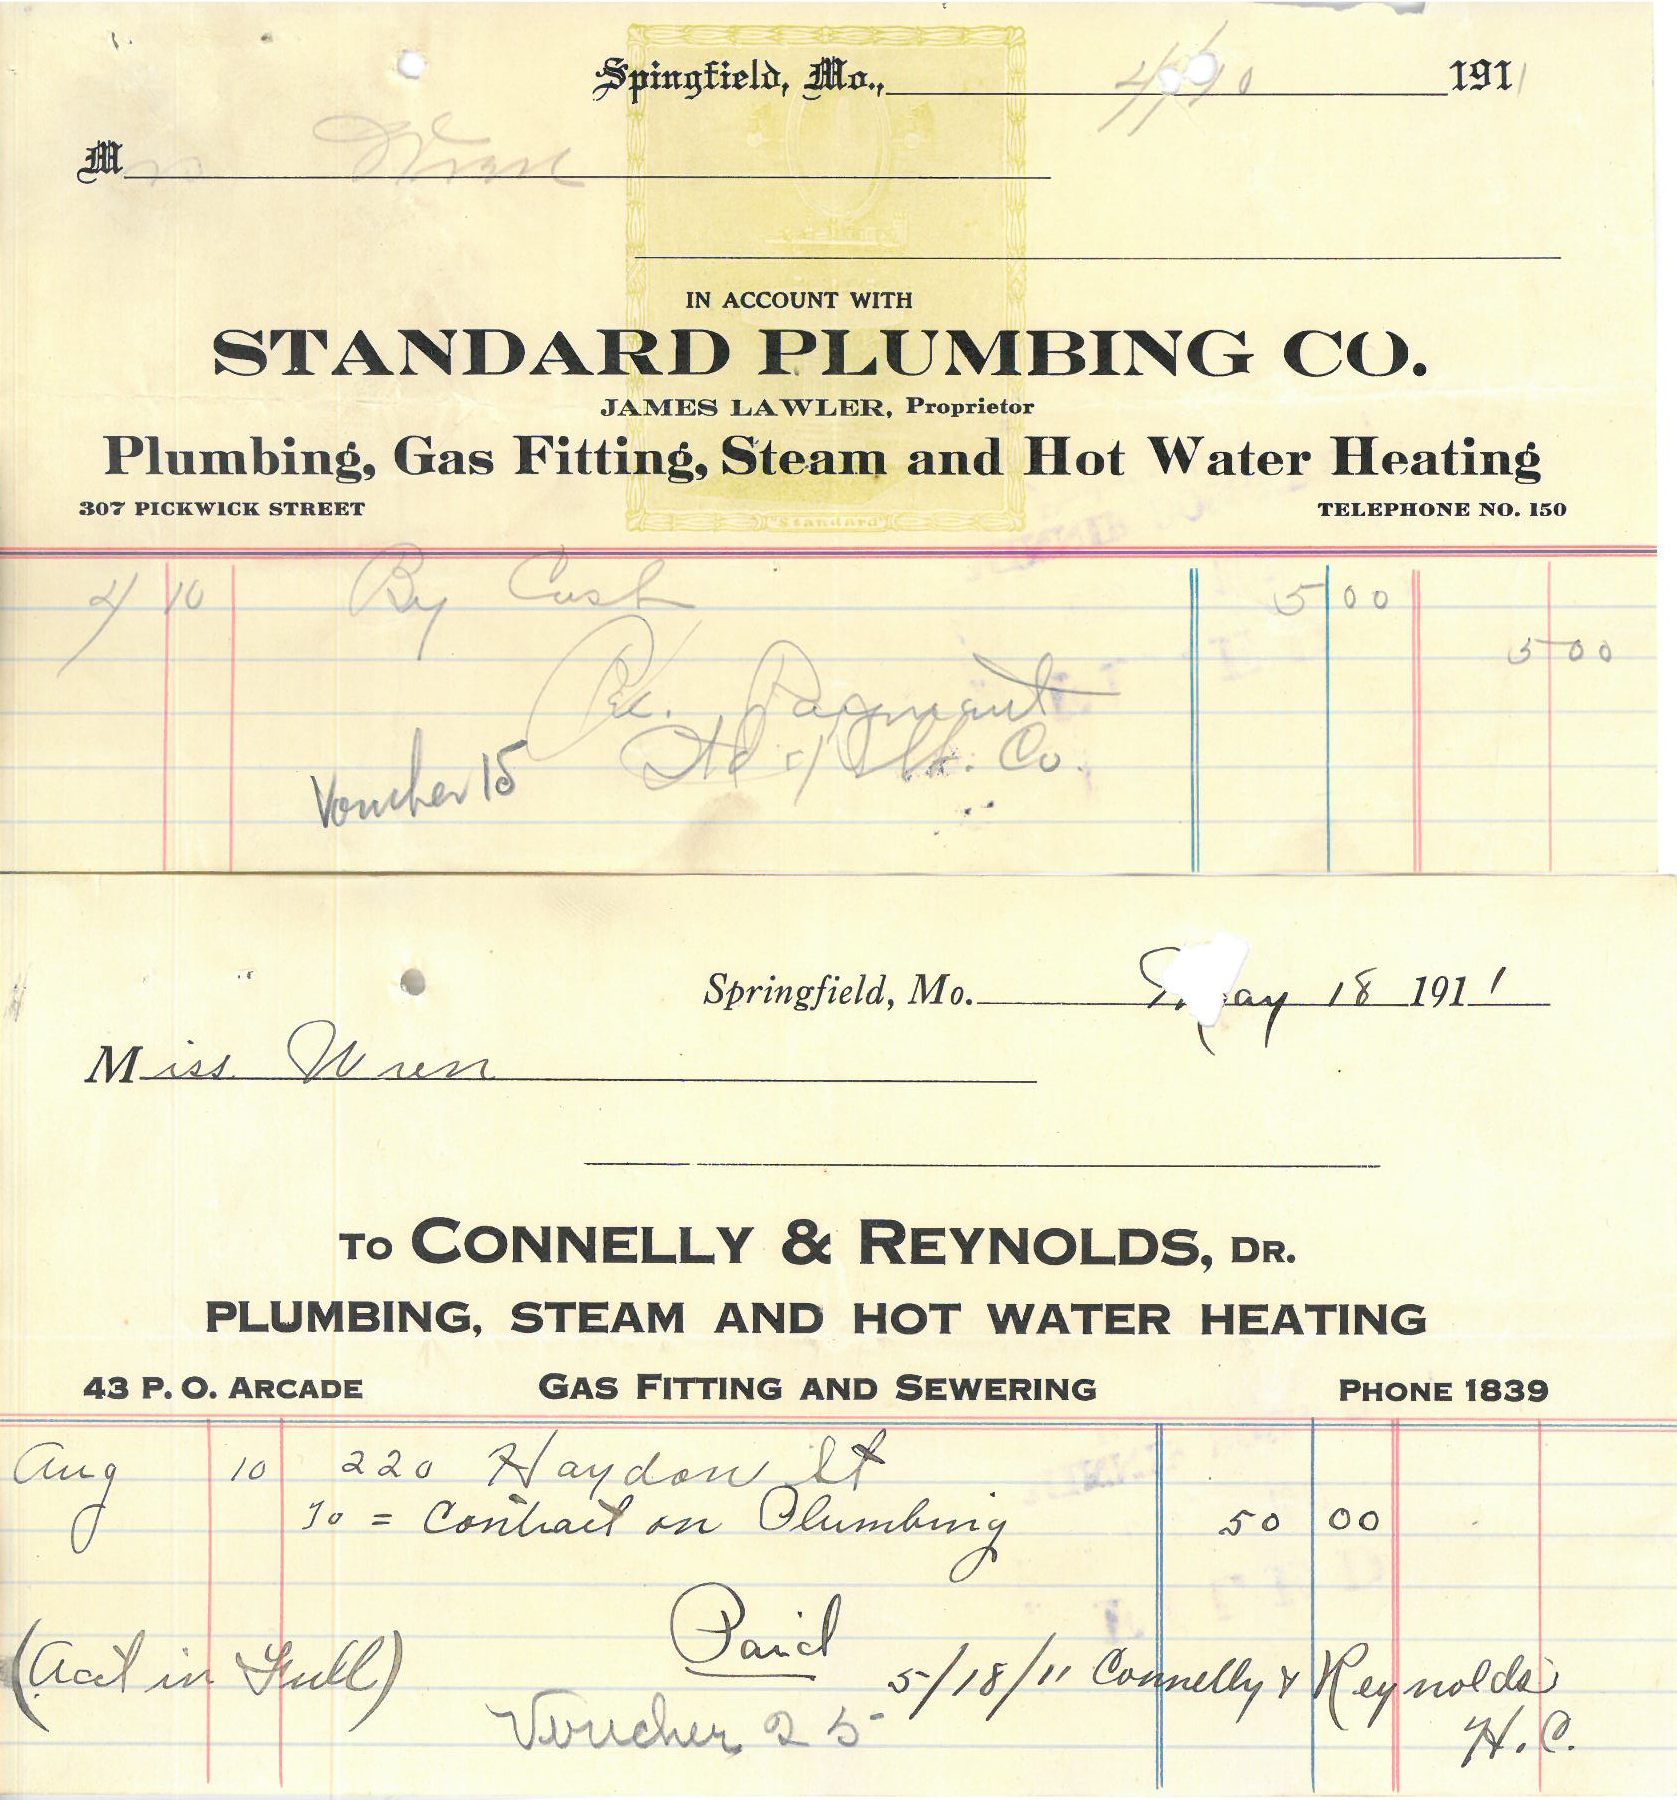 Spingfield, Mo., 4/10 1911
Mrs Wren
IN ACCOUNT WITH
STANDARD PLUMBING CO.
JAMES LAWLER, Proprietor
Plumbing, Gas Fitting, Steam and Hot Water Heating
307 PICKWICK STREET TELEPHONE NO. 150
"Standard"
4/10 By Cash 5 00
5 00
Rec. Payment
Std Plb. Co.
Voucher 15
Springfield, Mo. May 18 1911
Miss Wren
TO CONNELLY & REYNOLDS, DR.
PLUMBING, STEAM AND HOT WATER HEATING
43 P. O. ARCADE GAS FITTING AND SEWERING PHONE 1839
Aug 10 220 Haydon St
To = Contract on Plumbing 50 00
Paid
(Acct in Full) 5/18/11 Connelly & Reynolds
Voucher 25 H. C.